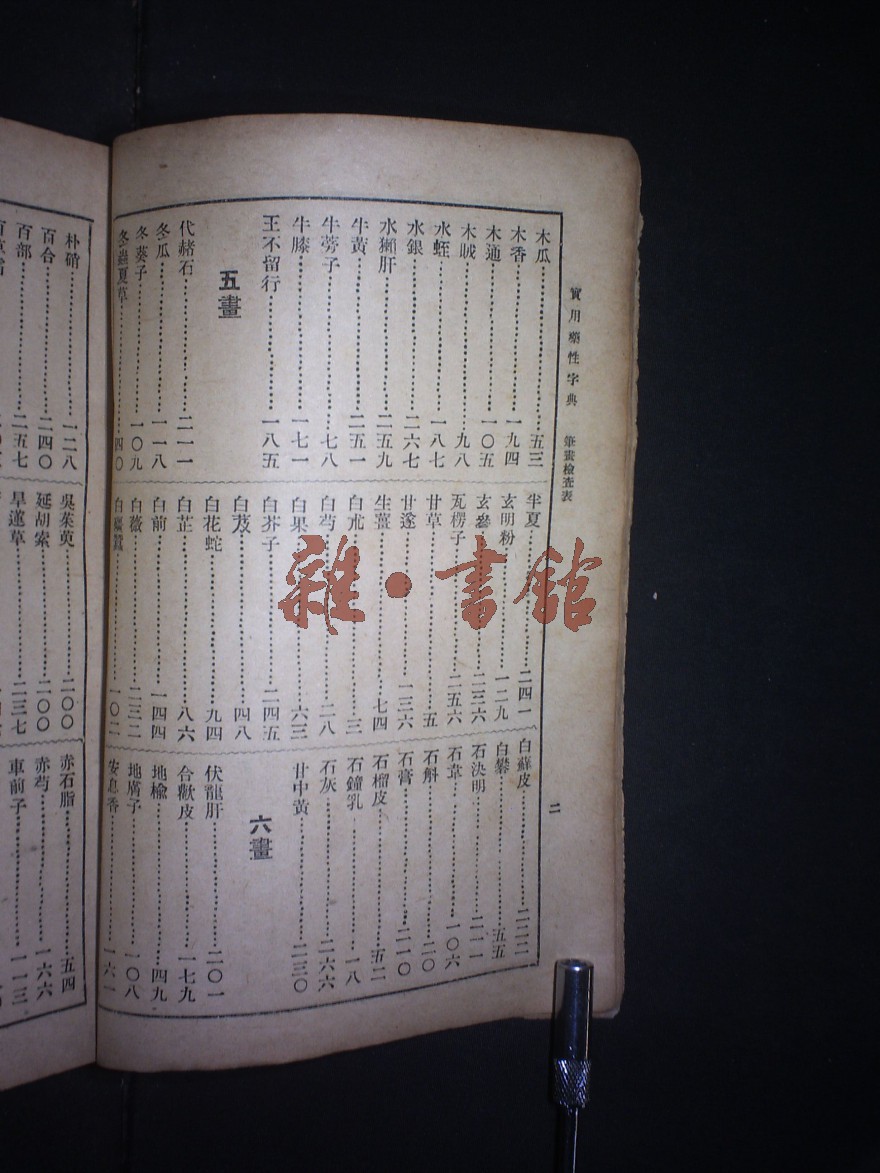 實用藥性字典 筆畫檢查表
二
木瓜……五三
木香……一九四
木通……一〇五
木賊……九八
水蛭……一八七
水銀……二六七
水獺肝……二五九
牛黃……二五一
牛蒡子……七八
牛膝……一七一
王不留行……一八五
五畫
代赭石……二一一
冬瓜……一一八
冬葵子……一〇九
冬蟲夏草……四〇
半夏……二四一
玄明粉……一二九
玄參……二三六
瓦楞子……二五六
甘草……五
甘遂……一三六
生薑……七四
白朮……三
白芍……二八
白果……六三
白芥子……二四五
白芨……四八
白花蛇……九四
白芷……八六
白前……一四四
白薇……二三二
白殭蠶……一〇二
白蘇皮……二二二
白礬……五五
石決明……二一一
石葦……一〇六
石斛……二〇
石膏……二一〇
石榴皮……五二
石鐘乳……一八
石灰……二六六
甘中黃……二三〇
六畫
伏龍肝……二〇一
合歡皮……一七九
地楡……四九
地膚子……一〇八
安息香……一六一
朴硝……一二八
百合……二四〇
百部……二五七
吳茱萸……二〇〇
延胡索……二〇〇
旱蓮草……二三七
赤石脂……五四
赤芍……一六六
車前子……一一三
雜·書館